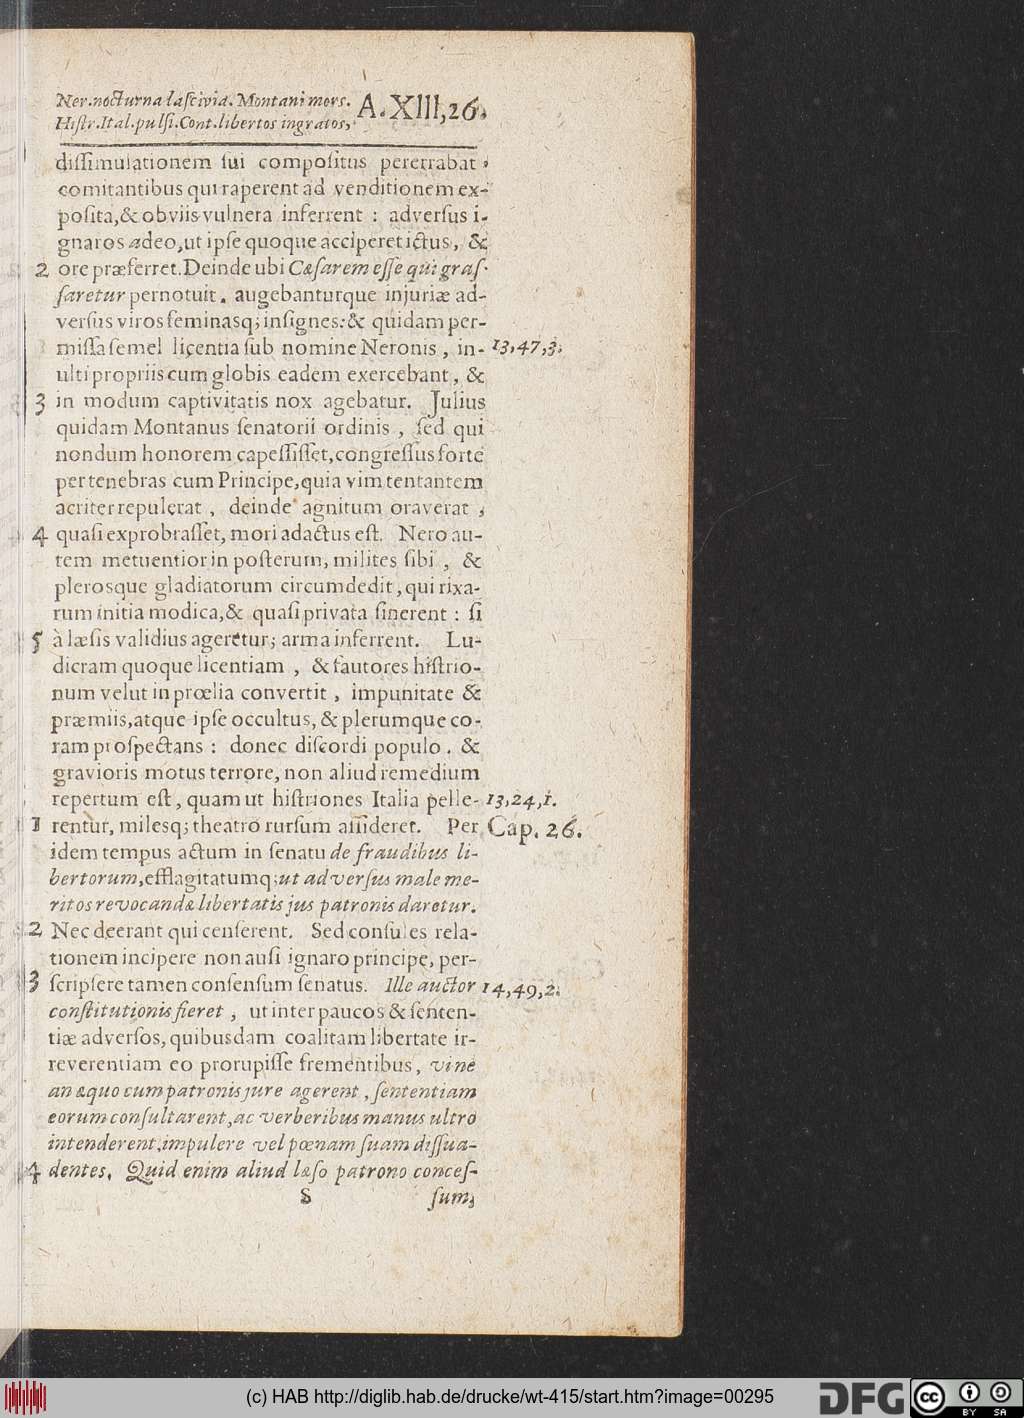 Ner.nocturna laſcivia. Montani mors. A. XIII, 26.
Hiſtr.Ital.pulſi.Cont.libertos ingratos,
diſſimulationem ſui compoſitus pererrabat,
comitantibus qui raperent ad venditionem ex-
poſita,& obviis vulnera inferrent : adverſus i-
gnaros adeo,ut ipſe quoque acciperet ictus, &
2 ore præferret. Deinde ubi Cæſarem eſſe qui graſ-
ſaretur pernotuit. augebanturque injuriæ ad-
verſus viros feminasq; inſignes:& quidam per-
miſſa ſemel licentia ſub nomine Neronis, in- 13,47,3.
ulti propriis cum globis eadem exercebant, &
3 in modum captivitatis nox agebatur. Julius
quidam Montanus ſenatorii ordinis, ſed qui
nondum honorem capeſſiſſet,congreſſus forte
per tenebras cum Principe,quia vim tentantem
acriter repulerat, deinde agnitum oraverat,
4 quaſi exprobraſſet, mori adactus eſt. Nero au-
tem metuentior in poſterum, milites ſibi, &
plerosque gladiatorum circumdedit, qui rixa-
rum initia modica,& quaſi privata ſinerent : ſi
5 à læſis validius ageretur; arma inferrent. Lu-
dicram quoque licentiam, & fautores hiſtrio-
num velut in prœlia convertit, impunitate &
præmiis,atque ipſe occultus, & plerumque co-
ram proſpectans : donec diſcordi populo. &
gravioris motus terrore, non aliud remedium
repertum eſt, quam ut hiſtriones Italia pelle- 13,24,1.
1 rentur, milesq; theatro rurſum aſſideret. Per Cap. 26.
idem tempus actum in ſenatu de fraudibus li-
bertorum,efflagitatumq;ut adverſus male me-
ritos revocandæ libertatis jus patronis daretur.
2 Nec deerant qui cenſerent. Sed conſules rela-
tionem incipere non auſi ignaro principe, per-
3 ſcripſere tamen conſenſum ſenatus. Ille auctor 14,49,2.
conſtitutionis fieret, ut inter paucos & ſenten-
tiæ adverſos, quibusdam coalitam libertate ir-
reverentiam eo prorupiſſe frementibus, vine
an æquo cum patronis jure agerent, ſententiam
eorum conſultarent,ac verberibus manus ultro
intenderent,impulere vel pœnam ſuam diſſua-
4 dentes. Quid enim aliud læſo patrono conceſ-
S ſum,
(c) HAB http://diglib.hab.de/drucke/wt-415/start.htm?image=00295
DFG
cc BY SA